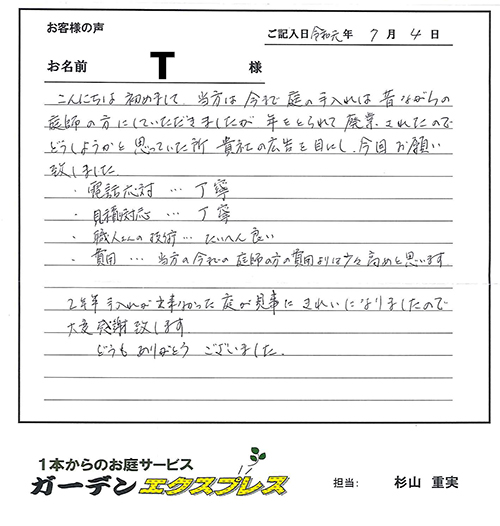 お客様の声
ご記入日 令和元年 7月 4日
お名前 T 様
こんにちは 初めまして、当方は 今まで 庭の手入れは 昔ながらの
庭師の方にしていただきましたが 年をとられて 廃業されたので
どうしようかと思っていた所 貴社の広告を目にし、今回お願い
致しました
・電話応対 … 丁寧
・見積対応 … 丁寧
・職人さんの技術 … たいへん良い
・費用 … 当方の今までの 庭師の方の費用よりは少々高めと思います
2年半 手入れが出来なかった 庭が 見事に きれいになりましたので
大変感謝致します
どうもありがとう ございました.
1本からのお庭サービス
ガーデンエクスプレス
担当: 杉山 重実